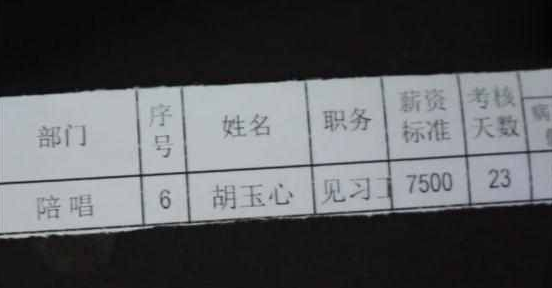 部门 序号 姓名 职务 薪资标准 考核天数 病
陪唱 6 胡玉心 见习 7500 23